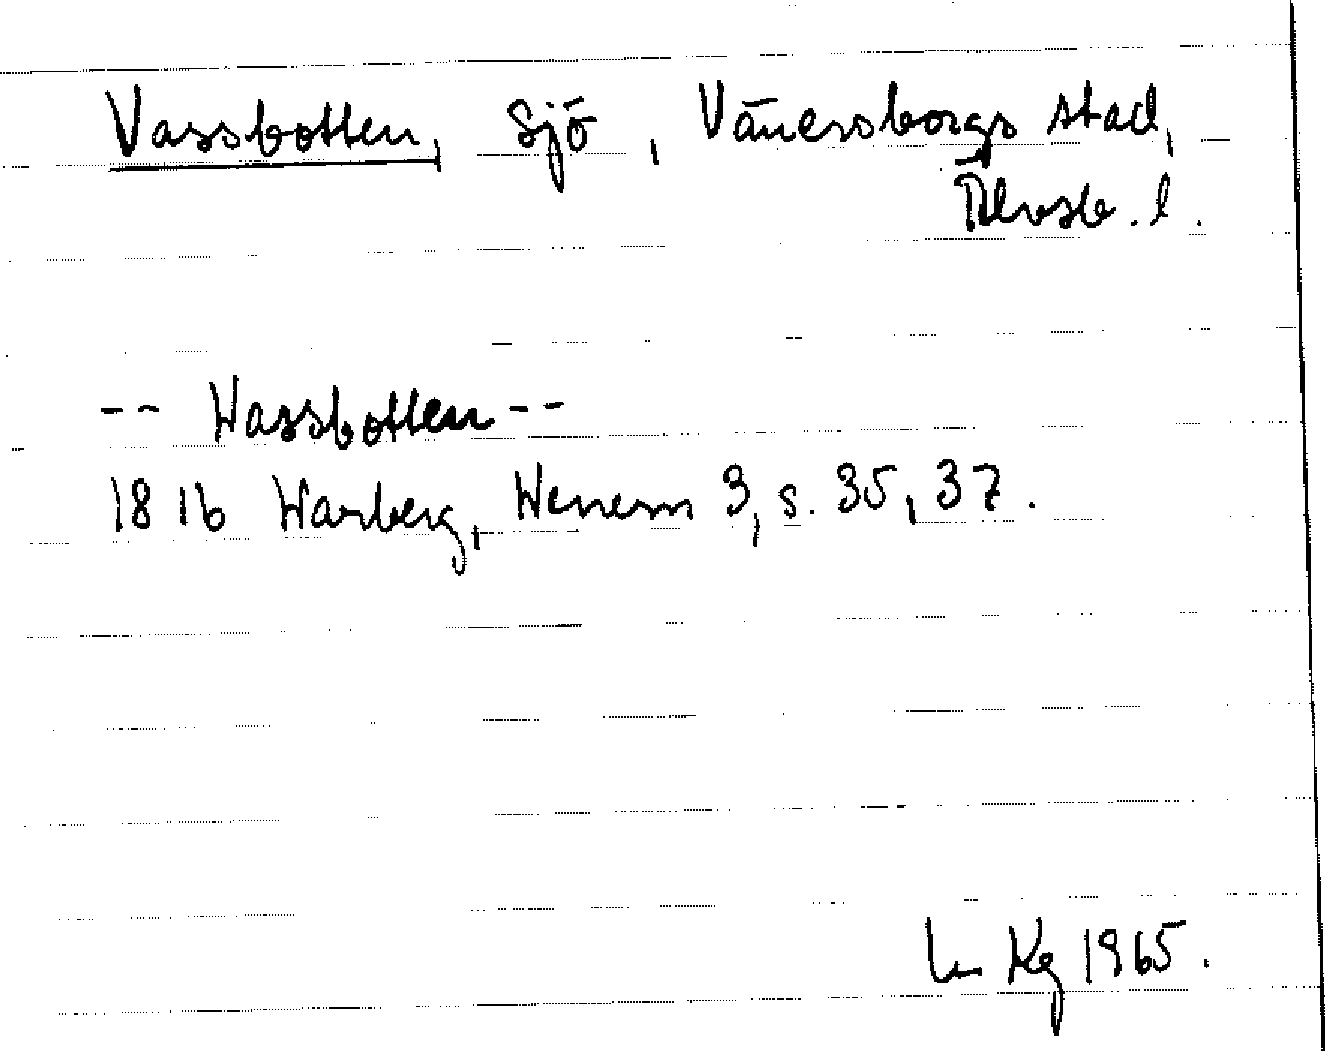 Vassbotten, sjö, Vänersborgs stad,
Älvsb. l.
-- Wassbotten --
1816 Warberg, Wenern 3, s. 35, 37.
Kg 1965.